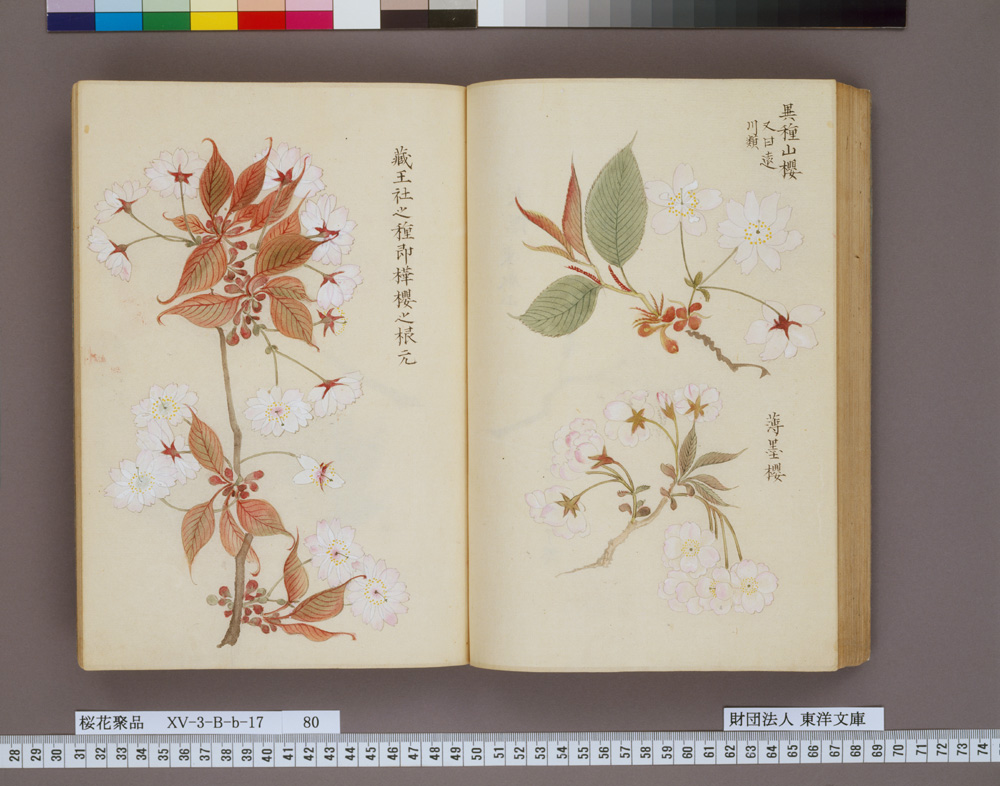 異種山櫻
又曰遠
川類
薄墨櫻
藏王社之種即樺櫻之根元
桜花聚品 XV-3-B-b-17 80
財団法人 東洋文庫
28 29 30 31 32 33 34 35 36 37 38 39 40 41 42 43 44 45 46 47 48 49 50 51 52 53 54 55 56 57 58 59 60 61 62 63 64 65 66 67 68 69 70 71 72 73 74